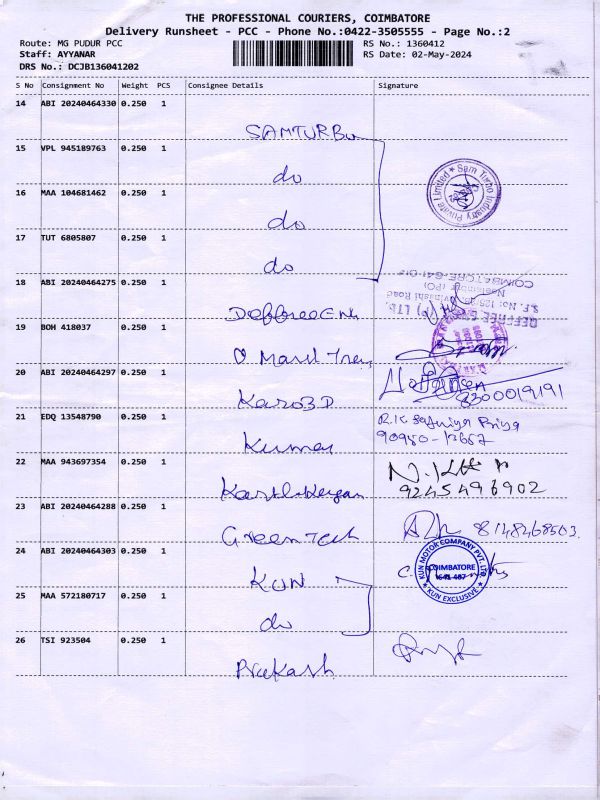 THE PROFESSIONAL COURIERS, COIMBATORE
Delivery Runsheet - PCC - Phone No.:0422-3505555 - Page No.:2
Route: MG PUDUR PCC RS No.: 1360412
Staff: AYYANAR RS Date: 02-May-2024
DRS No.: DCJB136041202
S No Consignment No Weight PCS Consignee Details Signature
14 ABI 20240464330 0.250 1
SAMTURBO
15 VPL 945189763 0.250 1
do
16 MAA 104681462 0.250 1
do
Sam Turbo Industry Private Limited
17 TUT 6805807 0.250 1
do
18 ABI 20240464275 0.250 1
DEFFREE ENG (P) LTD.
S.F. No: 125/ Avinashi Road
Neelambur (PO)
COIMBATORE-641 01
19 BOH 418037 0.250 1
20 ABI 20240464297 0.250 1
Karo3D
8300019191
21 EDQ 13548790 0.250 1
Kumar
22 MAA 943697354 0.250 1
9245496902
23 ABI 20240464288 0.250 1
Green Tech 8148468503.
24 ABI 20240464303 0.250 1
KUN
KUN MOTOR COMPANY PVT. LTD.
COIMBATORE
641 407
KUN EXCLUSIVE
25 MAA 572180717 0.250 1
do
26 TSI 923504 0.250 1
Prakash